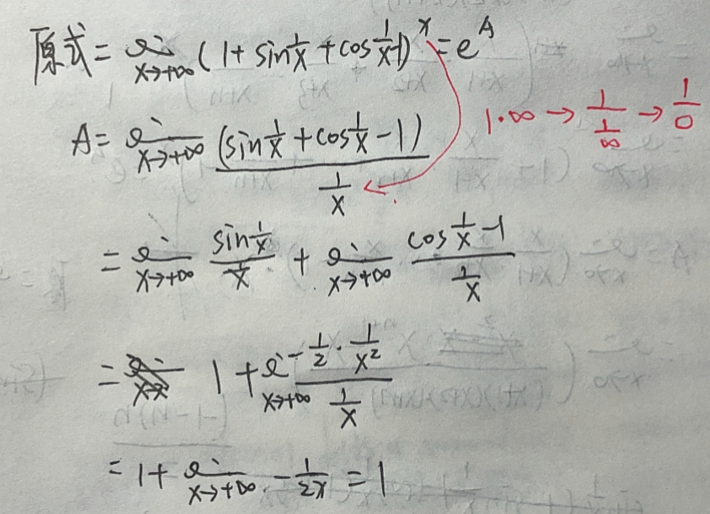 原式 = lim x→+∞ (1 + sin 1/x + cos 1/x - 1)^x = e^A
A = lim x→+∞ (sin 1/x + cos 1/x - 1) / (1/x)
1·∞ → 1/(1/∞) → 1/0
= lim x→+∞ (sin 1/x)/(1/x) + lim x→+∞ (cos 1/x - 1)/(1/x)
= 1 + lim x→+∞ (-1/2 · 1/x²)/(1/x)
= 1 + lim x→+∞ -1/2x = 1